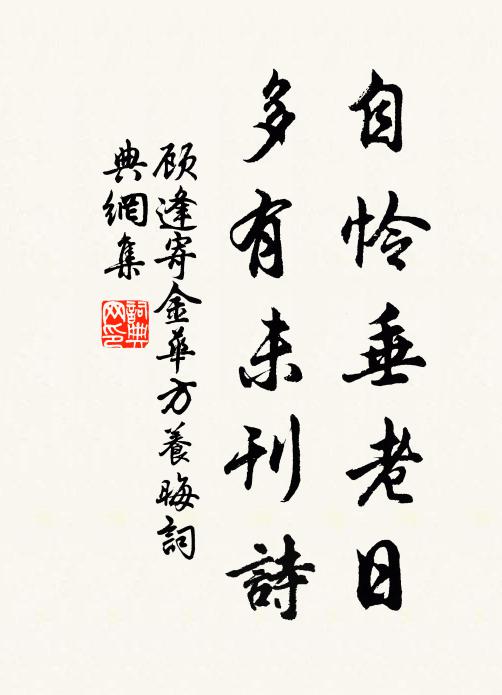 自怜垂老日
多有未刊詩
顾逢寄金華方養晦詞
典網集
詞典
网印